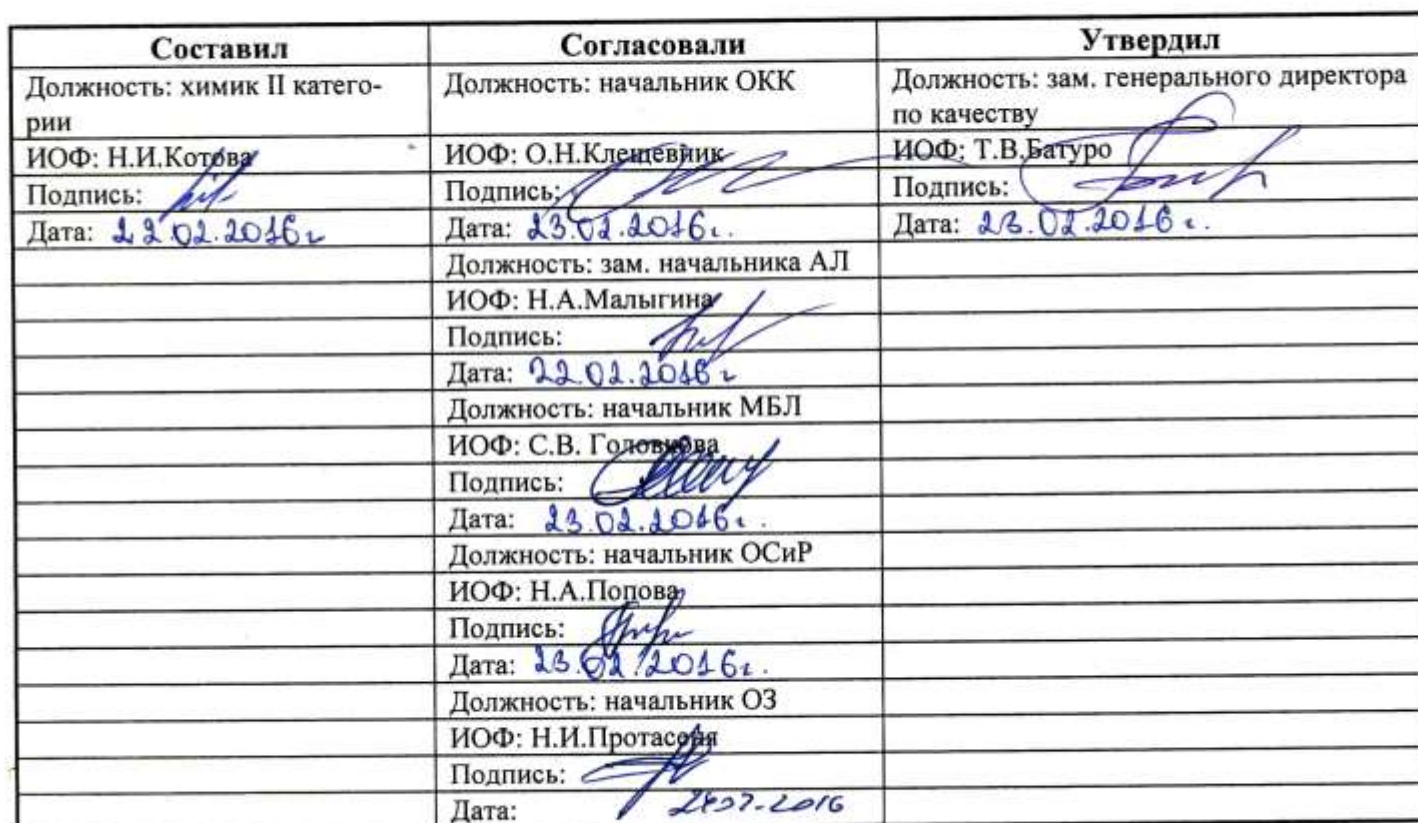 Составил
Согласовали
Утвердил
Должность: химик II катего-
рии
Должность: начальник ОКК
Должность: зам. генерального директора
по качеству
ИОФ: Н.И.Котова
ИОФ: О.Н.Клещевник
ИОФ: Т.В.Батуро
Подпись:
Подпись:
Подпись:
Дата: 22.02.2016г
Дата: 23.02.2016г.
Дата: 23.02.2016г.
Должность: зам. начальника АЛ
ИОФ: Н.А.Малыгина
Подпись:
Дата: 22.02.2016г
Должность: начальник МБЛ
ИОФ: С.В. Головкова
Подпись:
Дата: 23.02.2016г.
Должность: начальник ОСиР
ИОФ: Н.А.Попова
Подпись:
Дата: 23.02.2016г.
Должность: начальник ОЗ
ИОФ: Н.И.Протасеня
Подпись:
Дата: